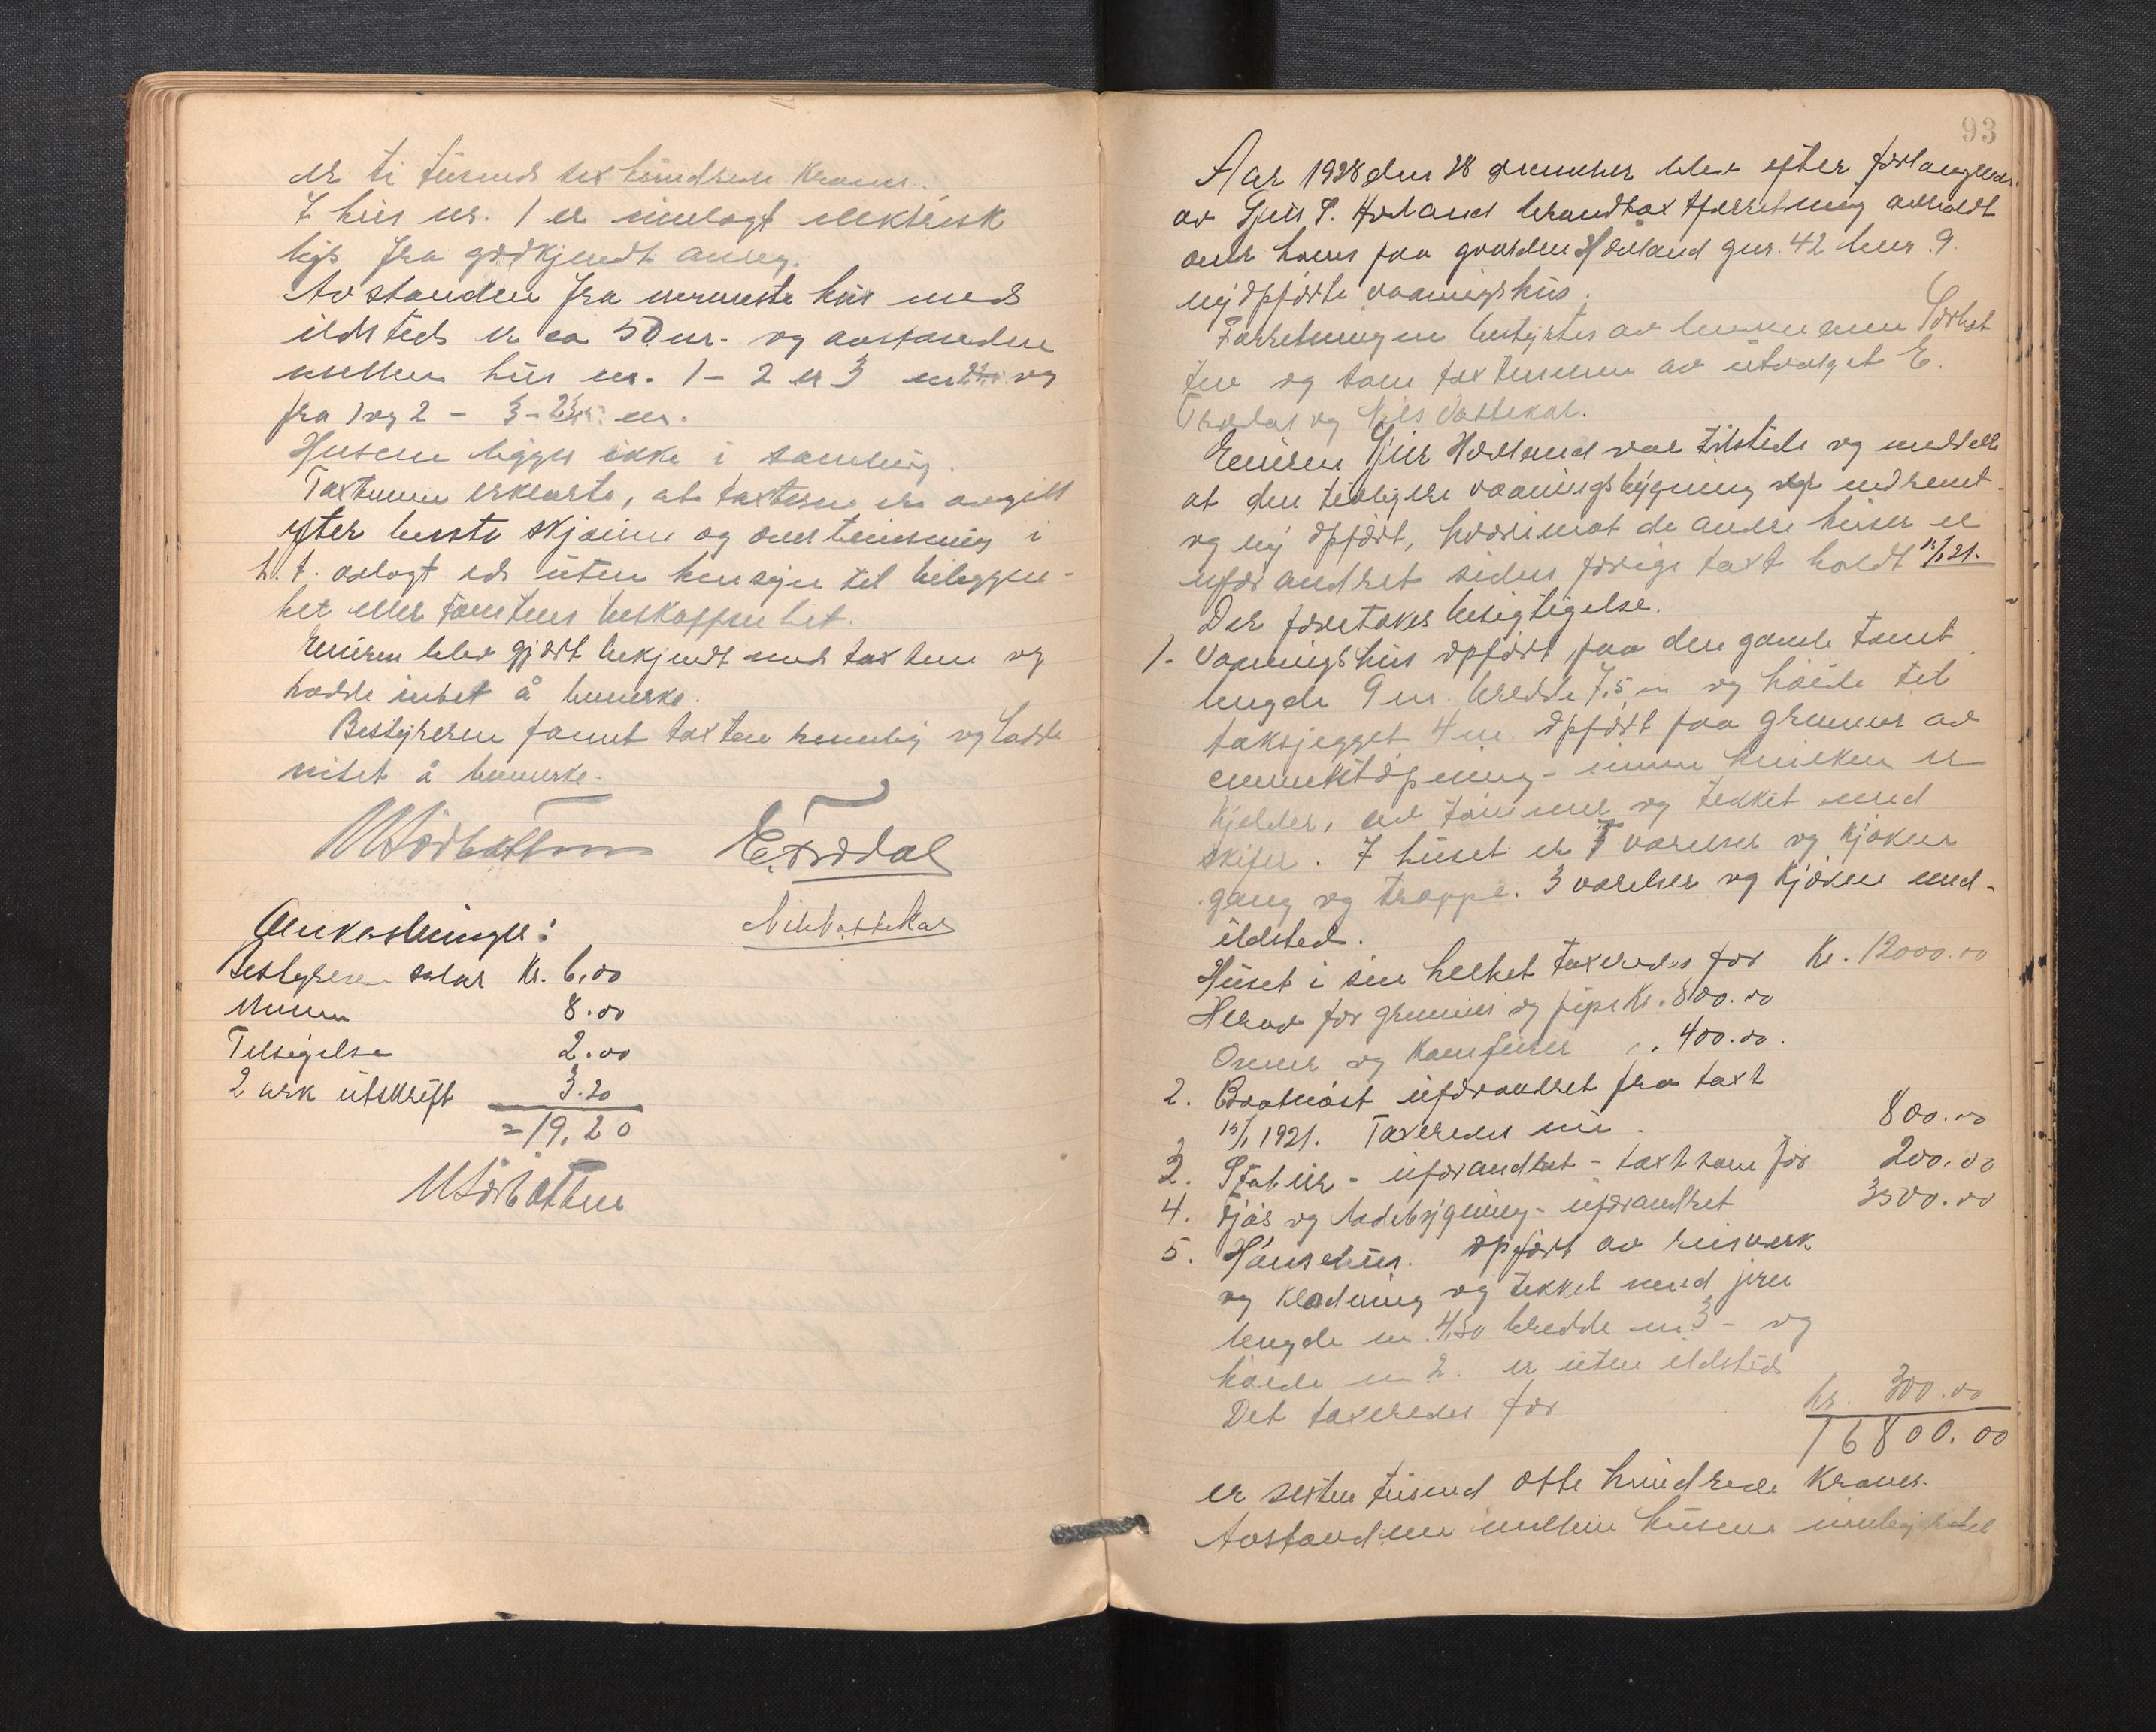 er ti tusend sexhundrede Kroner.
I hus nr. 1 er innlagt elektrisk
lys fra godkjendt anleg.
Avstanden fra nermeste hus med
ildsted er ca 50 m. og avstanden
mellem hus nr. 1 - 2 er 3 m og
fra 1 og 2 - 3 - m.
Husene ligger ikke i samling.
Taxtmenn erklærte, at taxterne er avgitt
efter beste skjønn og overbevisning i
h.t. avlagt ed uten hensyn til beliggen-
het eller tomtens beskaffenhet.
Eieren blev gjort bekjendt med taxten og
hadde intet å bemerke.
Bestyreren fannt taxten rimelig og hadde
intet å bemerke.
E. Trædal
Nils Vattekar
Omkostninger:
Bestyreren salær Kr. 6,00
Mennen 8.00
Tilsigelse 2.00
2 ark utskrift 3.20
= 19,20
93
Aar 1928 den 28 december blev efter forlangende
av Gjeir S. Hovland brandtaxtforretning avholdt
over hans paa gaarden Hovland gnr. 42 bnr. 9.
nyopførte vaaningshus.
Forretningen bestyrtes av lensmann Sørbot
ten og som taxtmenn av utvalget E.
Trædal og Nils Vattekar.
Eieren Gjeir Hovland var tilstede og meddelte
at den tidligere vaaningsbygning er nedremt
og ny opført, hvorimot de andre huser er
uforandret siden forige taxt holdt 15/1 21.
Der foretokes besigtigelse.
1. Vaaningshus opført paa den gamle tomt
lengde 9 m. bredde 7,5 m og høide til
taksjegget 4 m. opført paa grunmur av
cementstøpning - innen hvilken er
kjelder, av tømmer og tekket med
skifer. I huset er 7 værelser og kjøken
gang og trappe. 3 værelser og kjøken med
ildsted.
Huset i sin helhet taxeredes for Kr. 12000.00
Herav for grunmur og pipe Kr. 800.00
Ovner og Komfurer " 400.00.
2. Baatnøst uforandret fra taxt
15/1 1921. Taxeredes nu. 800.00
3. Stabur - uforandret - taxt som før 200.00
4. Fjøs og ladebygning - uforandret 3500.00
5. Hønsehus. opført av reisverk
og kledning og tekket med jern
lengde m. 4,50 bredde m 3 - og
høide m 2. er uten ildsted
Det taxeredes for kr. 300.00
16800.00
er sexten tusend otte hundrede Kroner.
Avstandene mellem husene